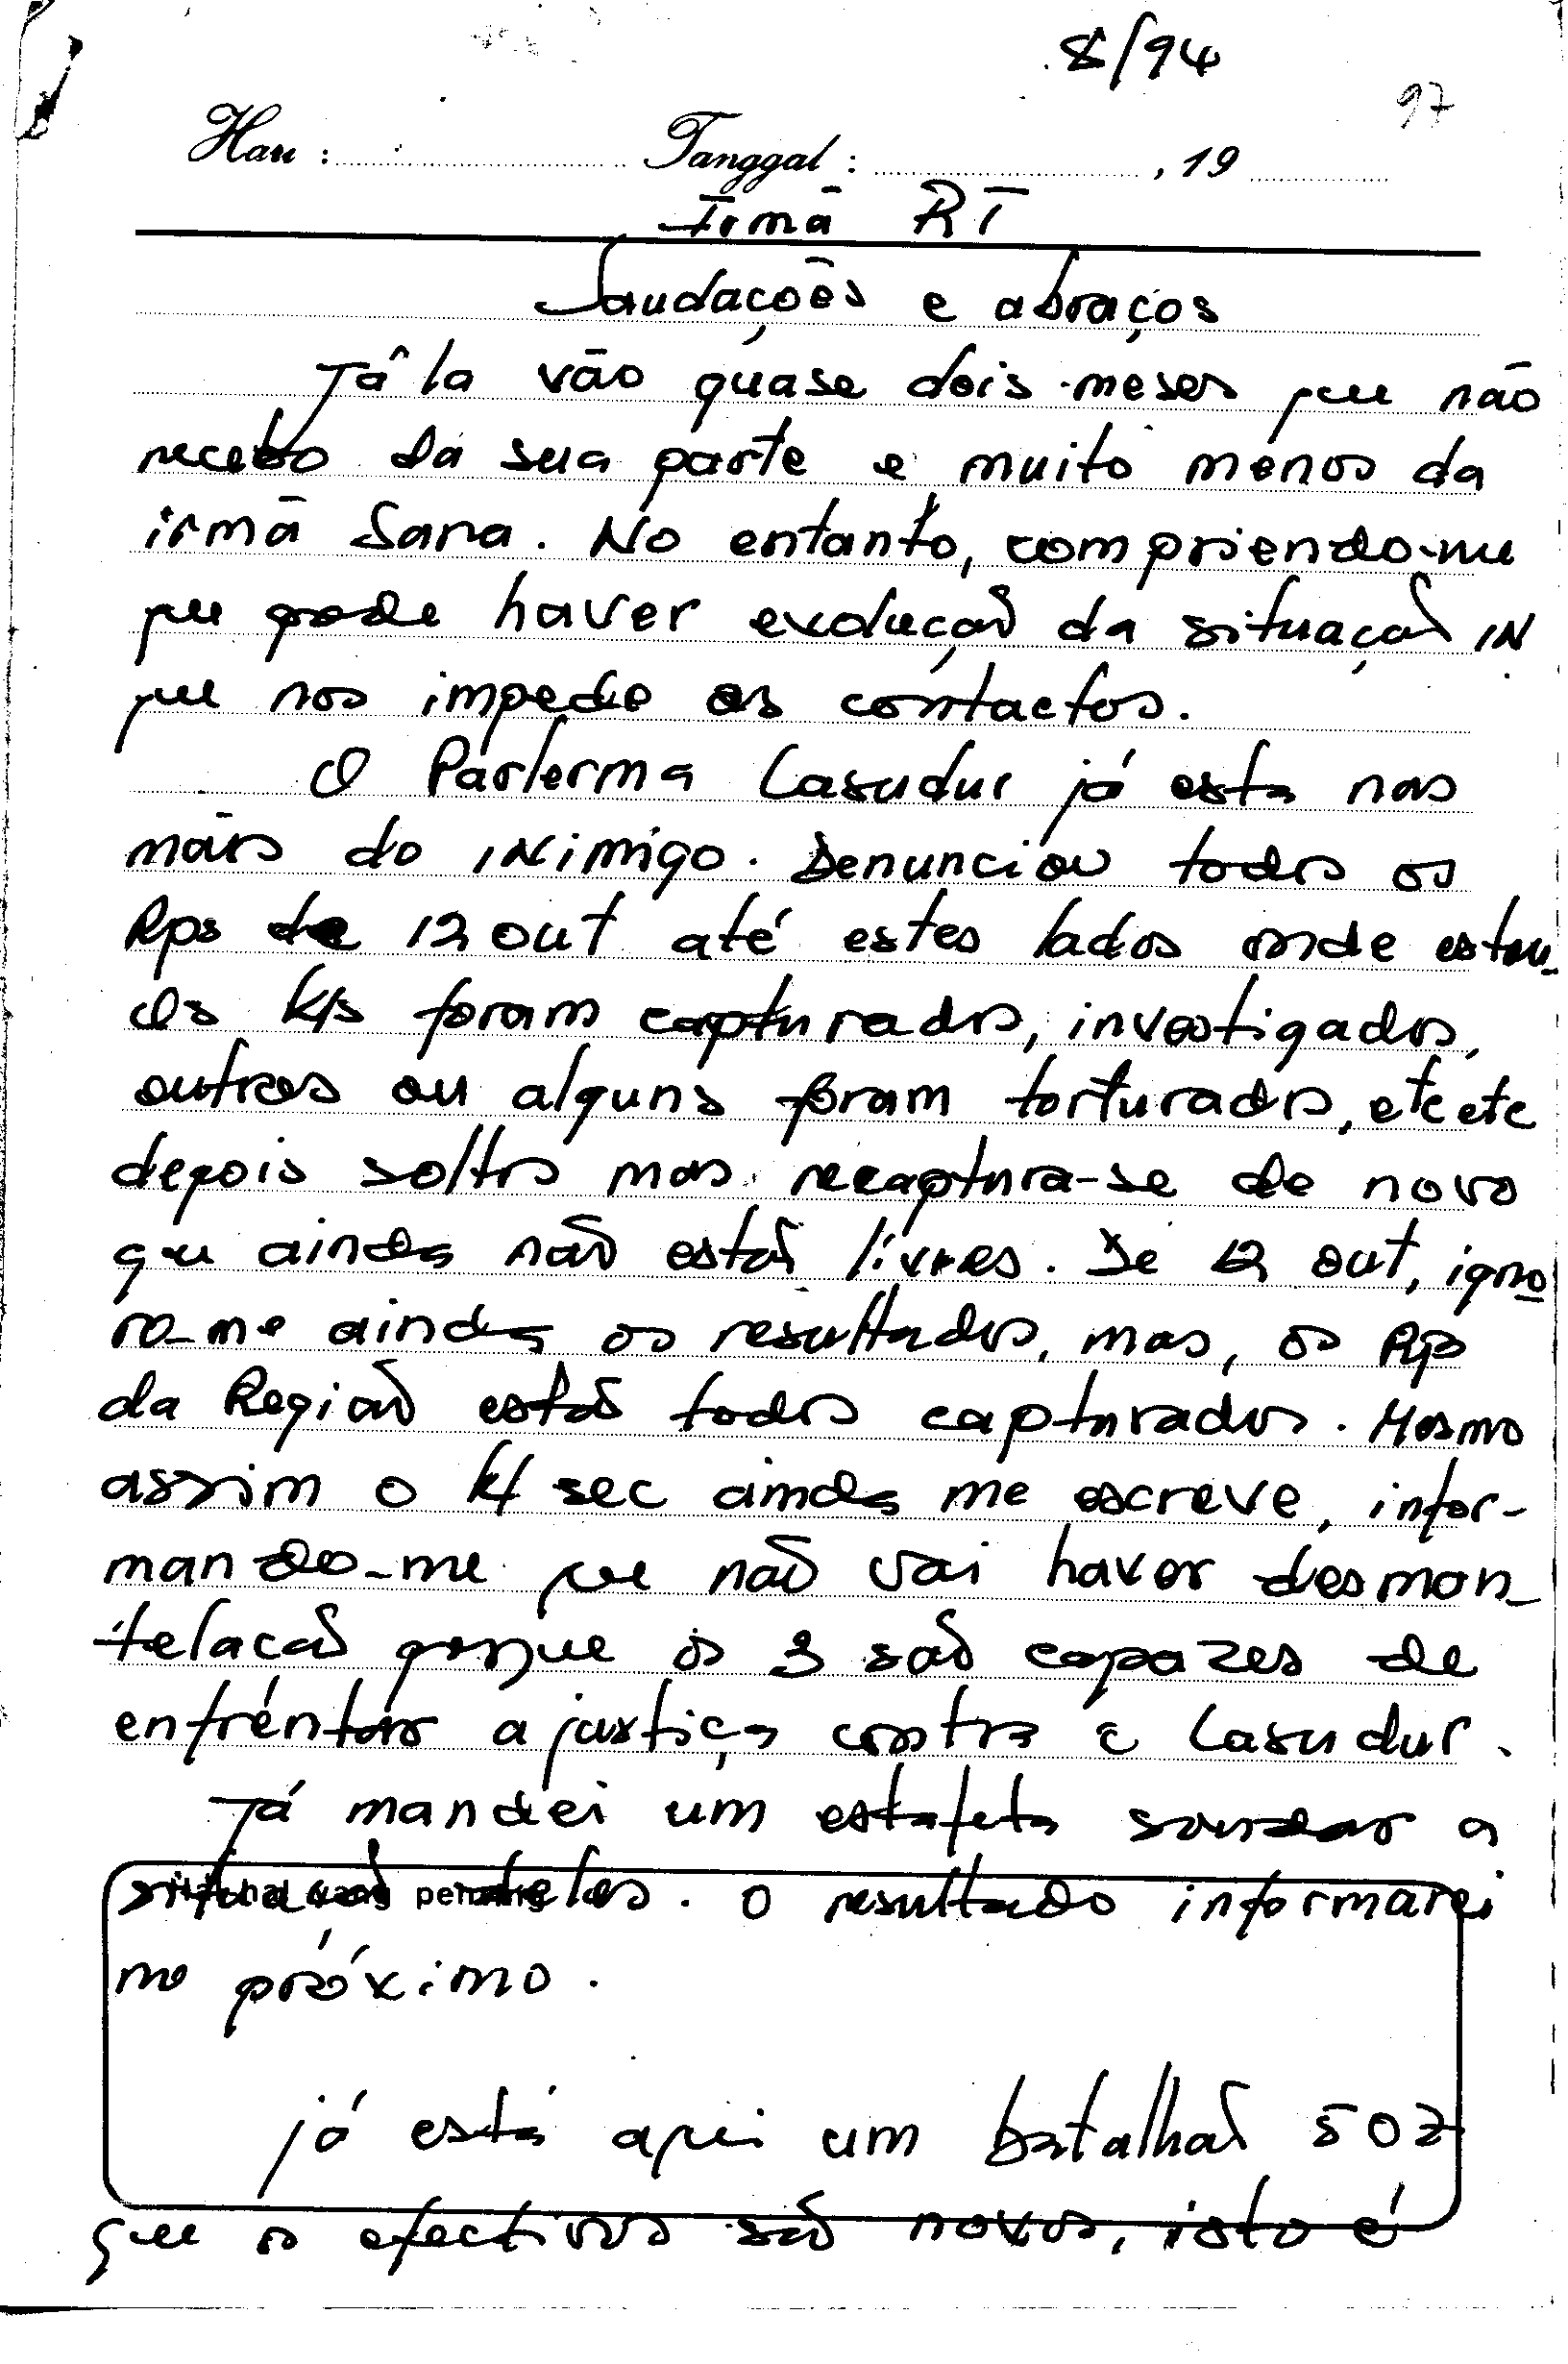 8/94
97
Hari : Tanggal : , 19
Irmã RT
Saudações e abraços
Já la vão quase dois meses que não
recebo da sua parte e muito menos da
irmã Sara. No entanto, compriendo-me
que pode haver evolução da situação IN
que nos impede os contactos.
O Parlerma Lasudur já esta nas
mãos do INimigo. Denunciou todos os
Rps de 12 out até estes lados onde estou.
Os K/s foram capturados, investigados,
outros ou alguns foram torturados, etc etc
depois soltos mas recaptura-se de novo
que ainda não estão livres. De 12 out, igno
ro-me ainda os resultados, mas, os Rps
da Região estão todos capturados. Mesmo
assim o K/ sec ainda me escreve, infor-
mando-me que não vai haver desmon-
telacão porque os 3 são capazes de
enfréntar a justiça contra e Lasudur.
Já mandei um estafeta sondar a
situacão deles. O resultado informarei
no próximo.
já está aqui um batalhão 502
que os efectivos são novos, isto é